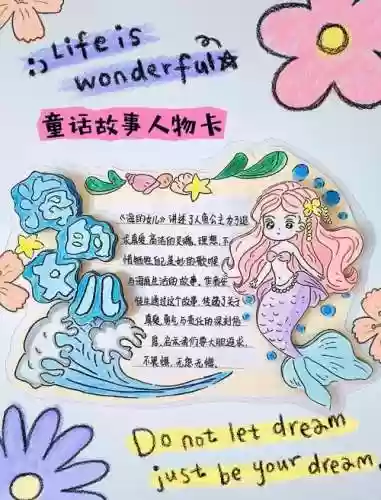 Life is
wonderful
童话故事人物卡
海的
女儿
《海的女儿》讲述了人鱼公主为了追
求真爱、高洁的灵魂、理想,不
惜牺牲自己美妙的歌喉
与海底生活的故事,作者安
徒生通过这个故事,传递了关于
真爱、勇气与责任的深刻信
息,启示者们要大胆追求,
不畏惧,无怨无悔。
Do not let dream
just be your dream.